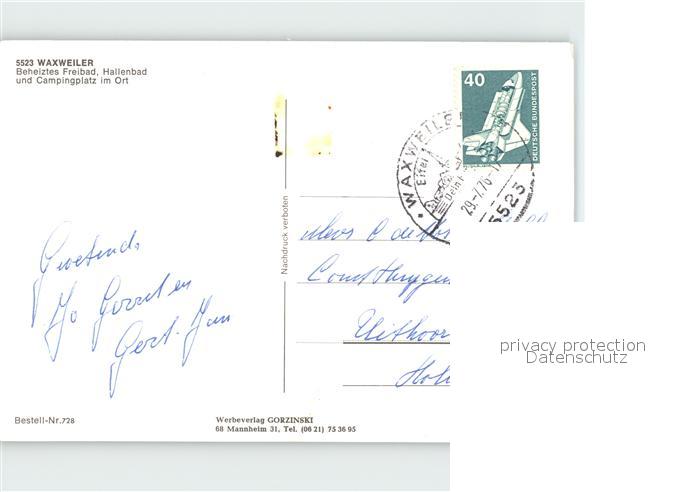 5523 WAXWEILER
Beheiztes Freibad, Hallenbad
und Campingplatz im Ort
40
DEUTSCHE BUNDESPOST
WAXWEILER
Eifel
29.-7.76-17
5523
Nachdruck verboten
Groetend.
Jo Gerrit en
Gert-Jan
Uithoor
Hol
privacy protection
Datenschutz
Bestell-Nr.728
Werbeverlag GORZINSKI
68 Mannheim 31, Tel. (06 21) 75 36 95